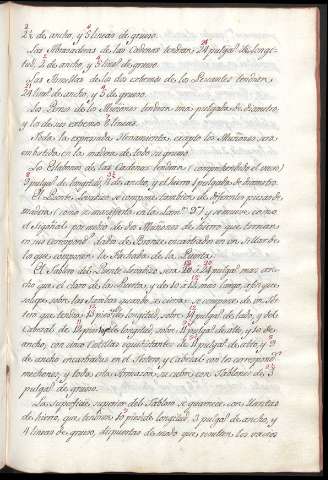 2½ de ancho, y 5 lineas de grueso.
Las Abrazaderas de las Cadenas tendran 24 pulgad.s de longi-
tud, 2 de ancho, y 3 lined.s de grueso.
Las Tomillas de los dos extremos de los Tirantes tendran
24 lined.s de ancho, y 3 de grueso.
Los Pernos de los Muñones tendran una pulgada de diametro,
y los de sus extremos 8 lineas.
Toda la expresada Herramienta, excepto los Muñones sera
embutida en la madera de todo su grueso.
Los Eslabones de las Cadenas tendran (comprendido el vano)
9 pulgad.s de longitud, 4½ de ancho, y el hierro 1 pulgada de diametro.
El Puente Levadizo se compone tambien de diferentes piezas de
madera (como se manifiesta en la Lam.a 97) y se mueve como
el Cigüeñal por medio de dos Muñones de hierro que tornean
en sus correspond.s dados de Bronze encastrados en un Sillar de
los que componen la Fachada de la Puerta.
El Tablero del Puente Levadizo sera 20 à 24 pulgad.s mas an-
cho que el claro de la Puerta, y de 10 à 12 mas largo, à fin que
solape sobre las Jambas quando se cierra: se compone de un Ste-
tern que tendra 13 pies de longitud, sobre 14 pulgad.s de lado, y del
Cabezal de 12 pies de longitud, sobre 9 pulgad.s de alto, y 10 de
ancho, con cinco Costillas equidistantes de 9 pulgad.s de alto, y 8
de ancho encastradas en el Stetern y Cabezal con los correspond.s
mechones, y todas esta formacion, se cubre con Tablones de 3
pulgad.s de grueso.
La superficie superior del Tablero se guarnece con Llantas
de hierro, que tendran 10 pies de longitud, 3 pulgad.s de ancho, y
4 lineas de grueso, dispuestas de modo que resulten los vacios